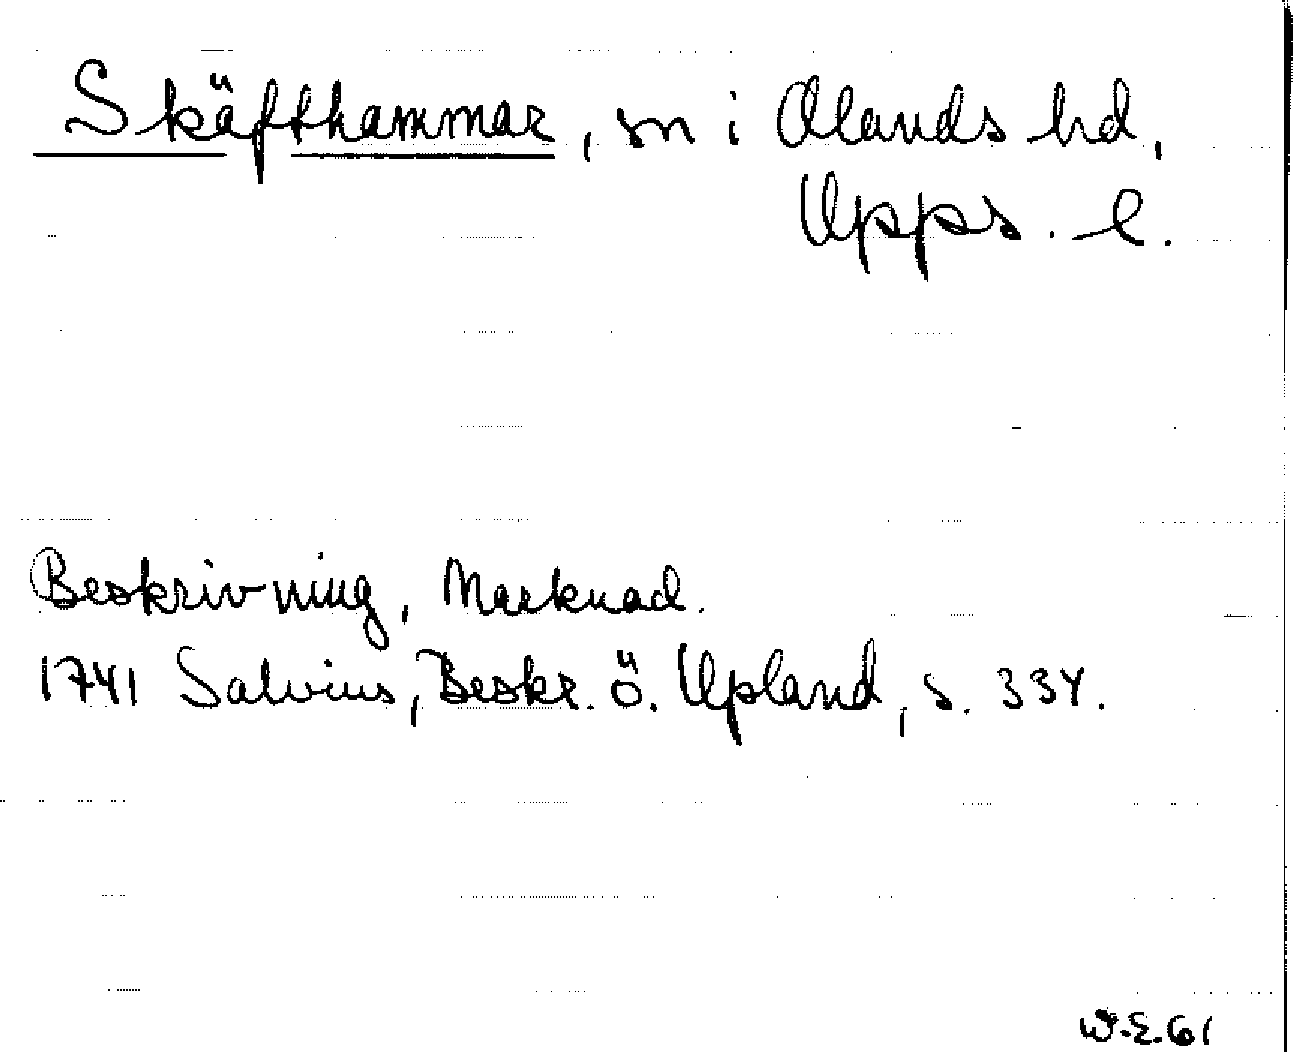 Skäfthammar, sn i Olands hd,
Upps. l.
Beskrivning, Marknad.
1741 Salvius, Beskr. ö. Upland, s. 334.
W.E.61